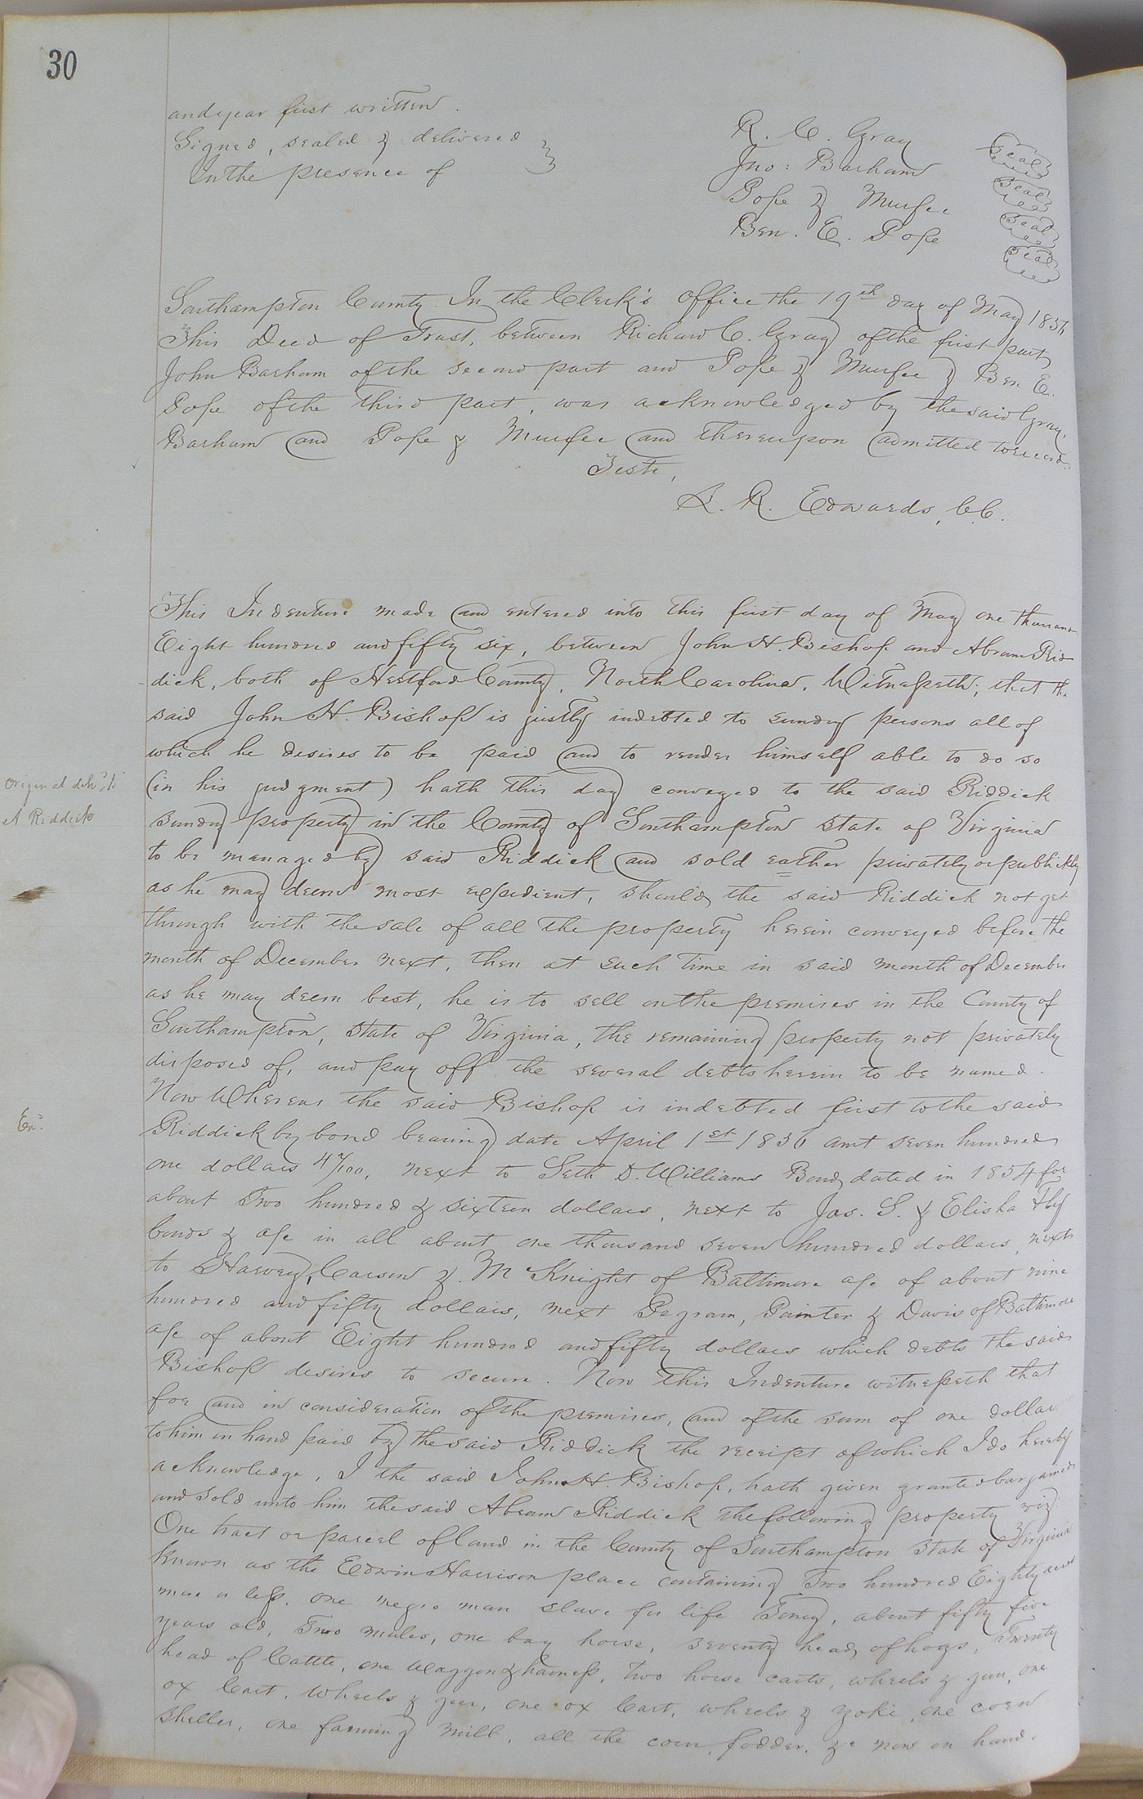 30
and year first written.
Signed, sealed & delivered
In the presence of
R. C. Gray Seal
Jno: Barham Seal
Pope & Murfee Seal
Ben. E. Pope Seal
Southampton County In the Clerk's office the 19th day of May 1856
This Deed of Trust, between Richard C. Gray of the first part,
John Barham of the second part and Pope & Murfee & Ben E.
Pope of the third part, was acknowledged by the said Gray,
Barham and Pope & Murfee and thereupon admitted to record.
Teste,
L. R. Edwards, C.C.
This Indenture made and entered into this first day of May one thousand
Eight hundred and fifty six, between John H. Bishop and Abram Rid-
dick, both of Hertford County, North Carolina, Witnesseth, that the
said John H. Bishop is justly indebted to sundry persons all of
which he desires to be paid and to render himself able to do so
(in his judgment) hath this day conveyed to the said Riddick
Original deld. to
A Riddick
sundry property in the County of Southampton State of Virginia
to be managed by said Riddick and sold eather privately or publickly
as he may deem most expedient, should the said Riddick not get
through with the sale of all the property herein conveyed before the
month of December next, then at such time in said month of December
as he may deem best, he is to sell on the premises in the County of
Southampton, State of Virginia, the remaining property not privately
disposed of, and pay off the several debts herein to be named.
Now Whereas the said Bishop is indebted first to the said
Ex.
Riddick by bond bearing date April 1st 1856 amt seven hundred
one dollars 47/100, next to Seth D. Williams Bond dated in 1854 for
about Two hundred & sixteen dollars, next to Jas. S. & Elisha
bonds & a/c in all about one thousand seven hundred dollars, next
to Harvey, Carson & McKnight of Baltimore a/c of about nine
hundred and fifty dollars, next Pegram, Painter & Davis of Baltimore
a/c of about Eight hundred and fifty dollars which debts the said
Bishop desires to secure. Now this Indenture witnesseth that
for and in consideration of the premises, and of the sum of one dollar
to him in hand paid by the said Riddick the receipt of which I do hereby
acknowledge, I the said John H. Bishop, hath given granted bargained
and sold unto him the said Abram Riddick the following property viz
One tract or parcel of land in the County of Southampton State of Virginia
known as the Edwin Harrison place containing Two hundred Eighty acres
more or less, one negro man slave for life Toney, about fifty five
years old, Two mules, one bay horse, seventy head of hogs, Twenty
head of Cattle, one Waggon & harness, two horse carts, wheels & gear, one
ox Cart, wheels & gear, one ox Cart, wheels & yoke, one corn
sheller, one fanning mill, all the corn, fodder, &c now on hand.